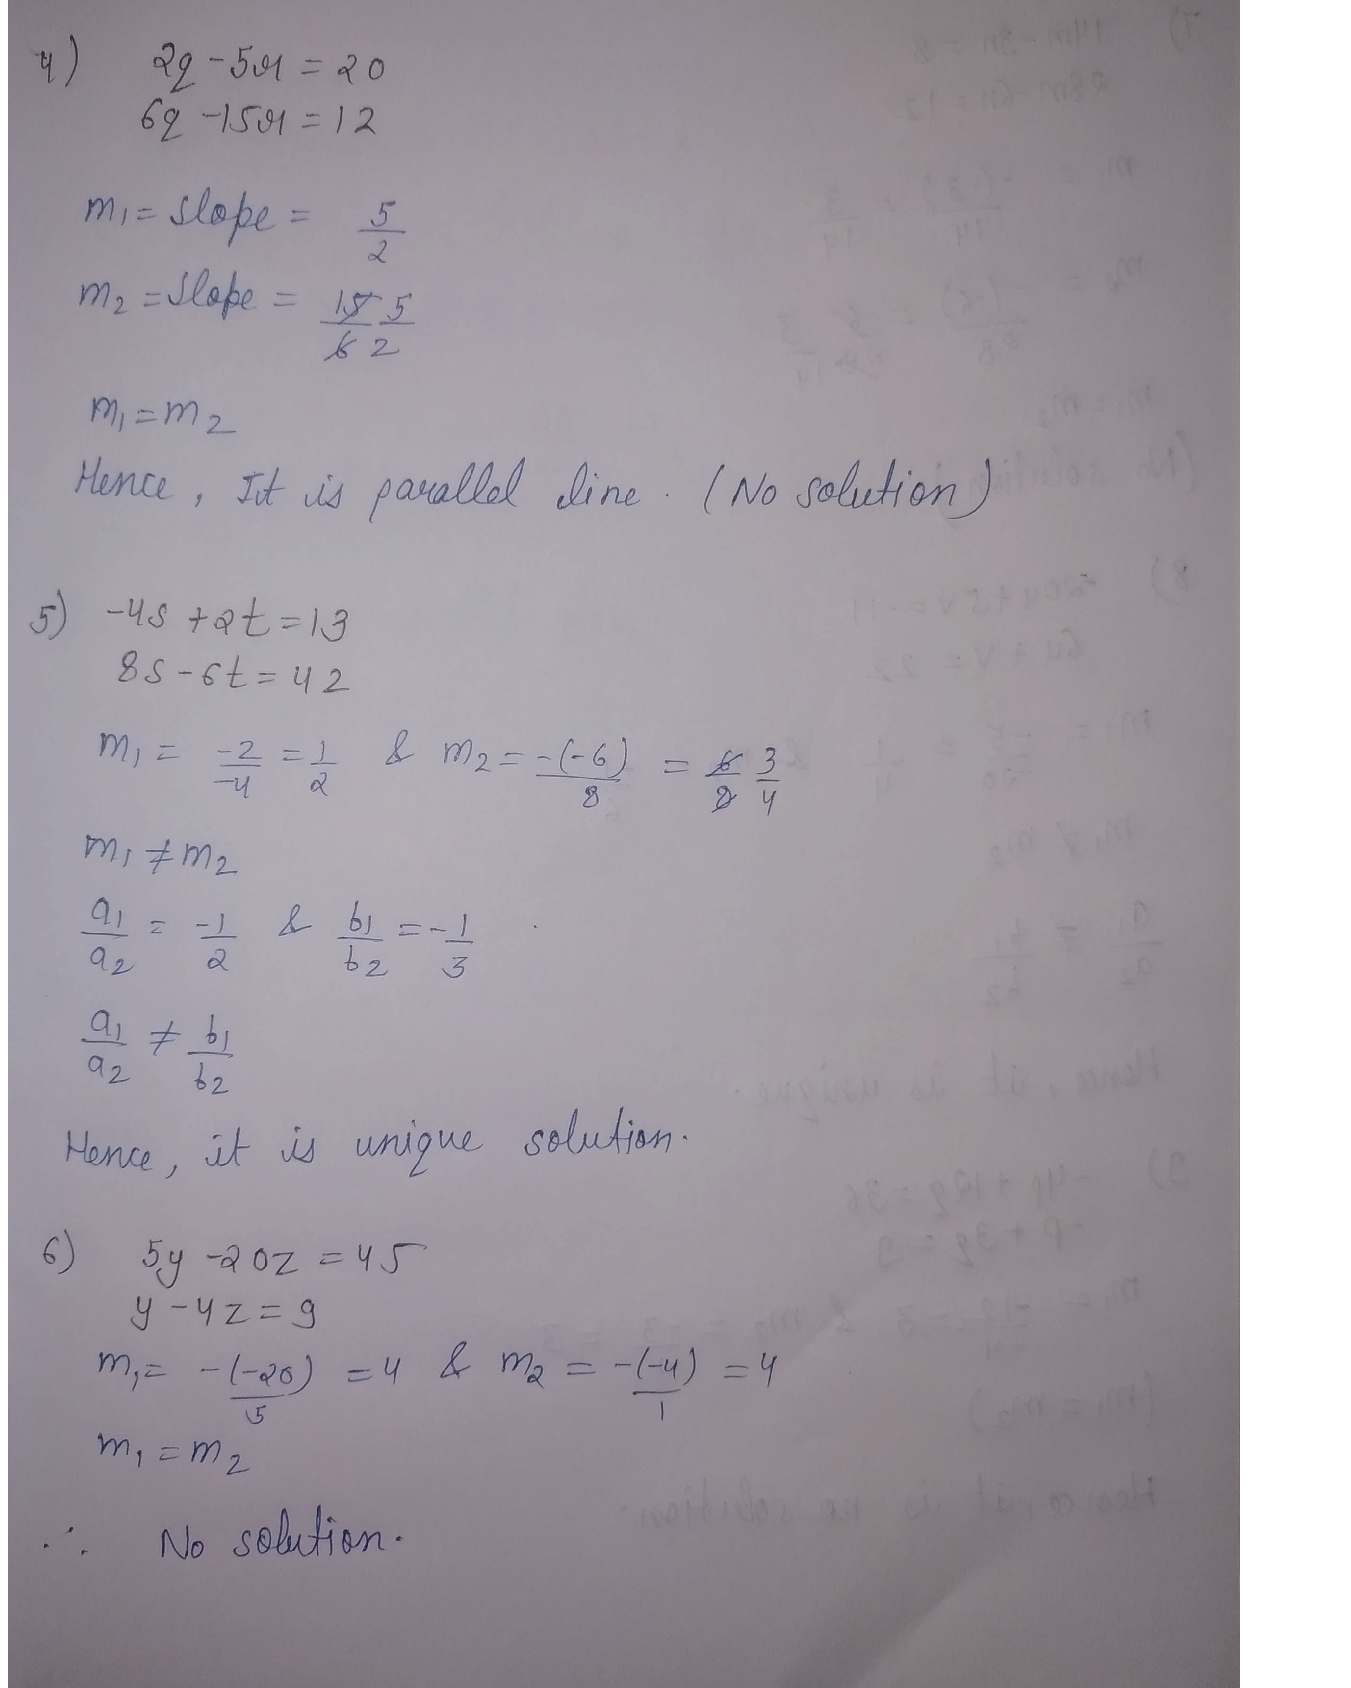 4) 2q - 5r = 20
6q - 15r = 12
m₁ = slope = 5/2
m₂ = slope = 15/6 5/2
m₁ = m₂
Hence, It is parallel line. (No solution)
5) -4s + 2t = 13
8s - 6t = 42
m₁ = -2/-4 = 1/2 & m₂ = -(-6)/8 = 6/8 3/4
m₁ ≠ m₂
a₁/a₂ = -1/2 & b₁/b₂ = -1/3
a₁/a₂ ≠ b₁/b₂
Hence, it is unique solution.
6) 5y - 20z = 45
y - 4z = 9
m₁ = -(-20)/5 = 4 & m₂ = -(-4)/1 = 4
m₁ = m₂
∴ No solution.